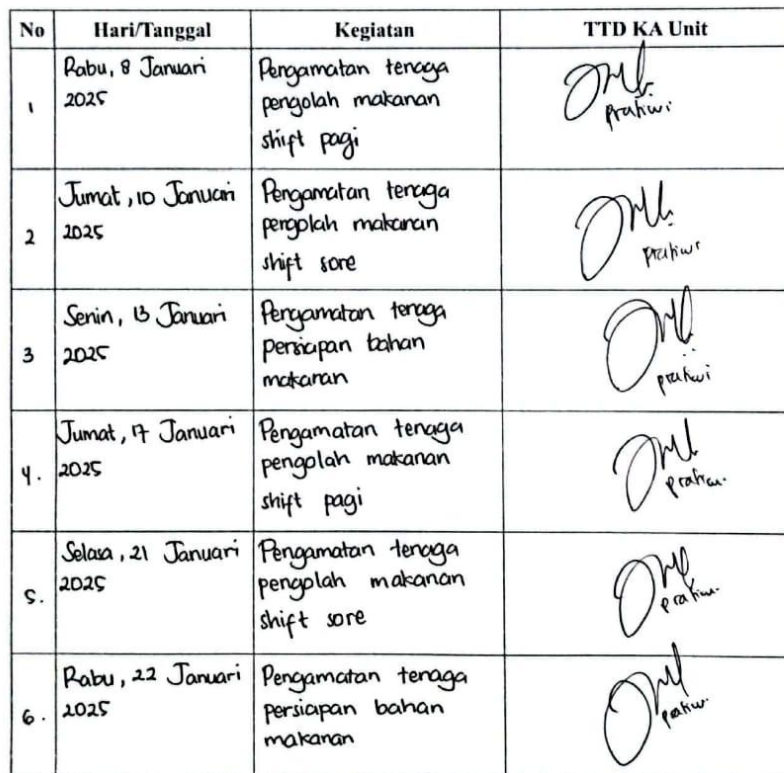 No Hari/Tanggal Kegiatan TTD KA Unit
1 Rabu, 8 Januari 2025 Pengamatan tenaga pengolah makanan shift pagi pratiwi
2 Jumat, 10 Januari 2025 Pengamatan tenaga pengolah makanan shift sore pratiwi
3 Senin, 13 Januari 2025 Pengamatan tenaga persiapan bahan makanan pratiwi
4. Jumat, 17 Januari 2025 Pengamatan tenaga pengolah makanan shift pagi pratiwi
5. Selasa, 21 Januari 2025 Pengamatan tenaga pengolah makanan shift sore pratiwi
6. Rabu, 22 Januari 2025 Pengamatan tenaga persiapan bahan makanan pratiwi